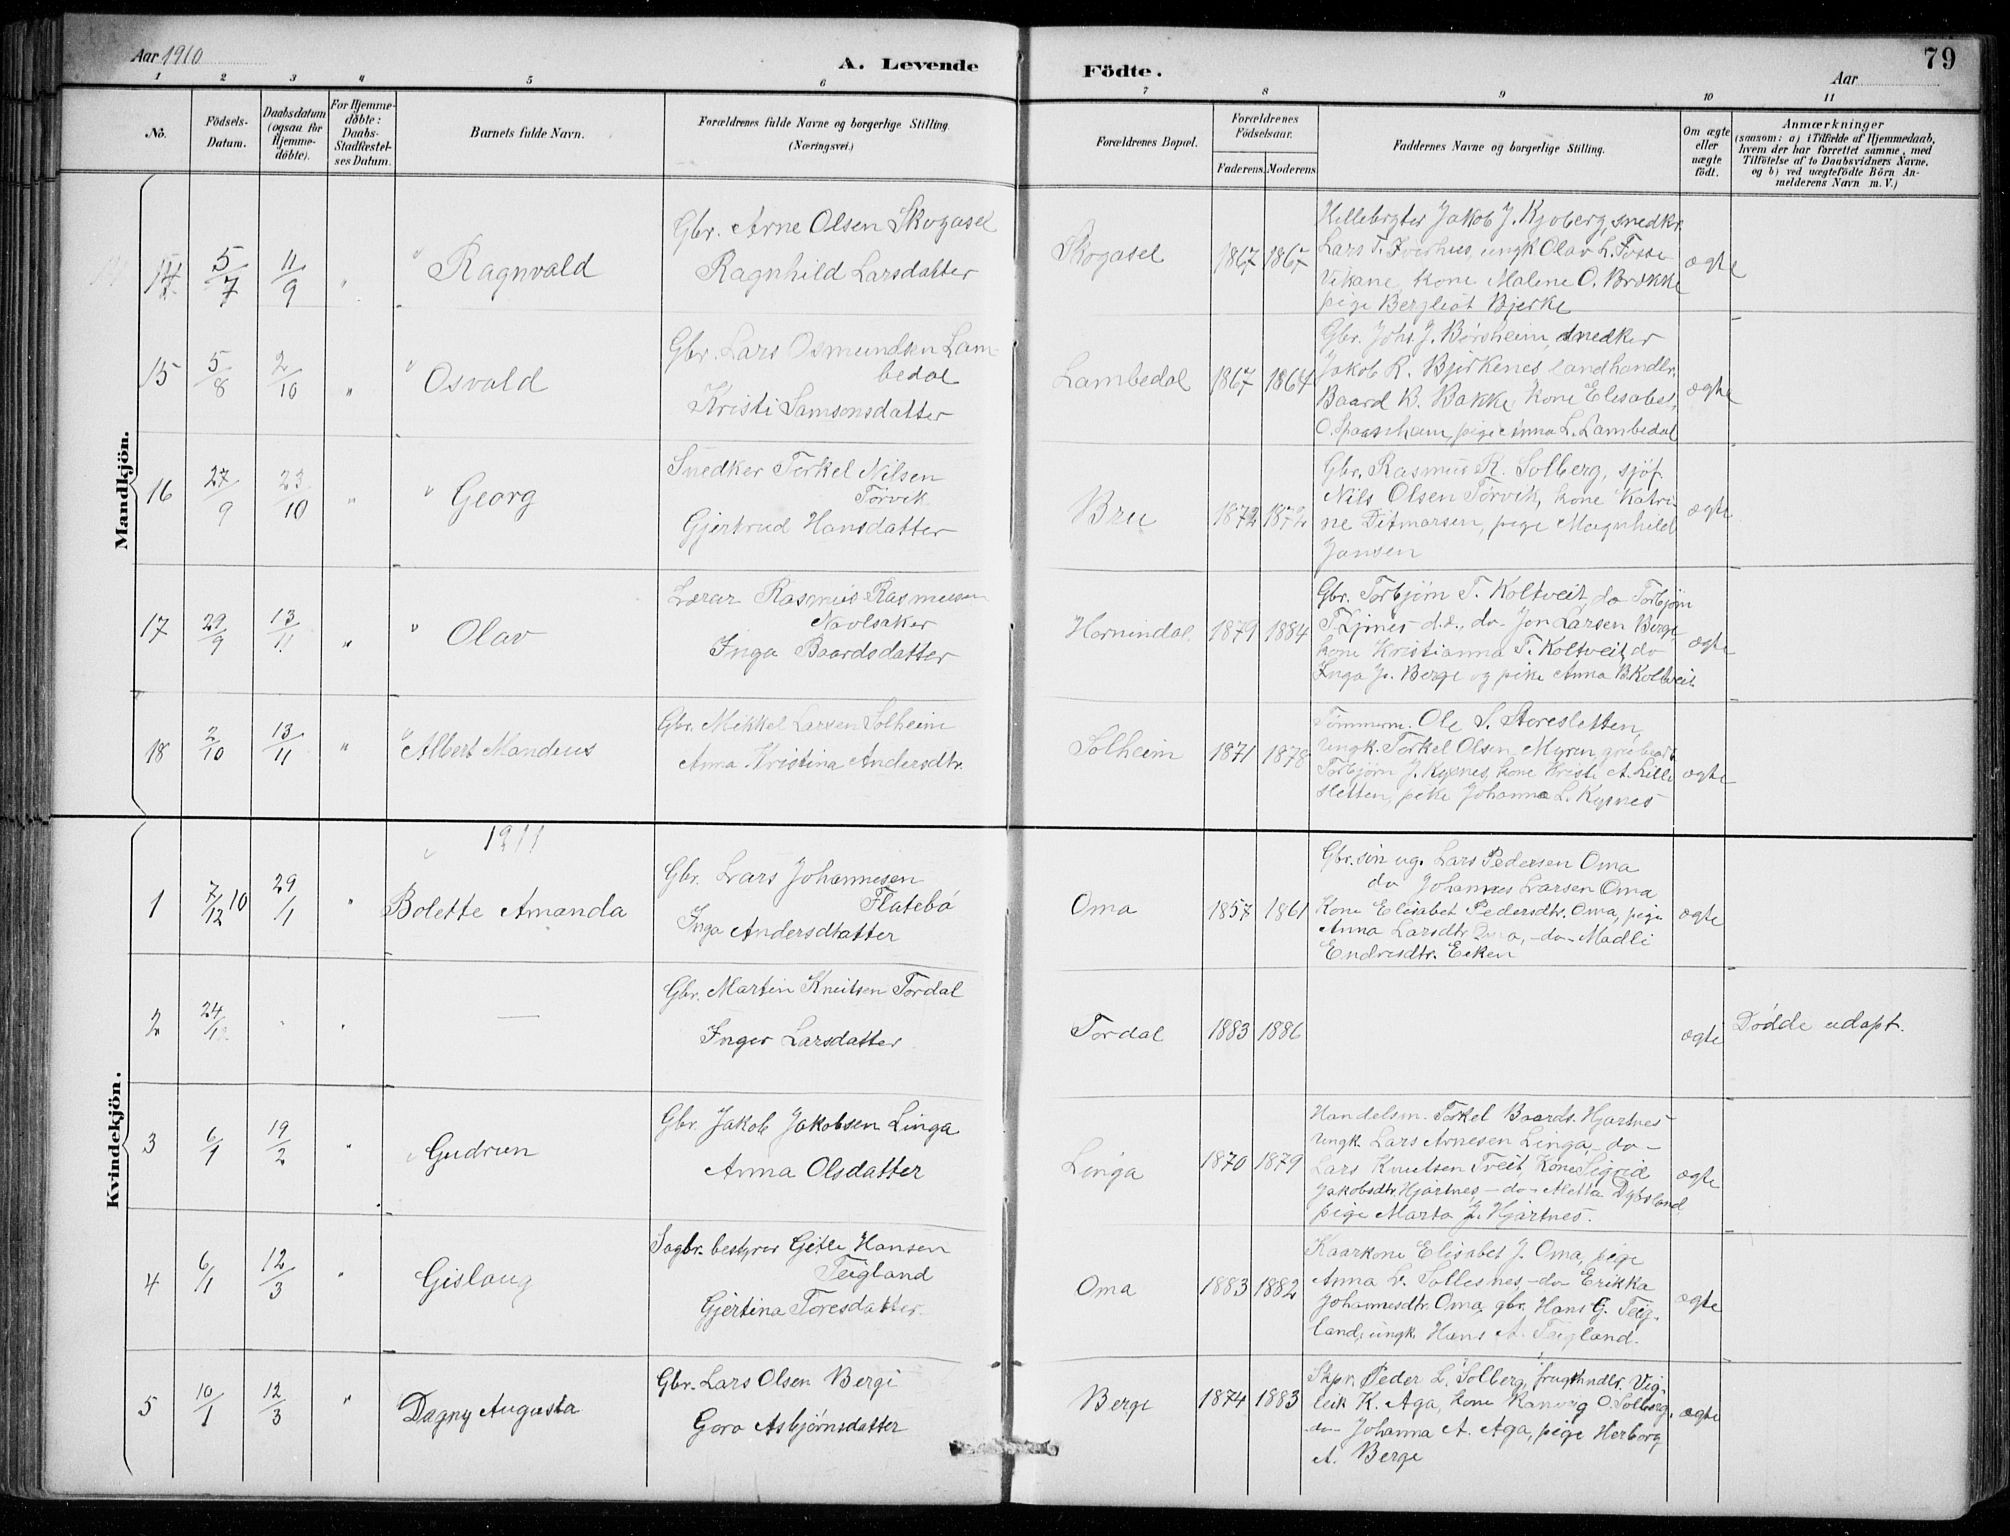 Aar 1910
A. Levende Födte.
Aar
79
1 2 3 4 5 6 7 8 9 10 11
No.
Födsels-Datum.
Daabsdatum (ogsaa for Hjemme-döbte).
For Hjemme-döbte: Daabs-Stadfæstel-ses Datum.
Barnets fulde Navn.
Forældrenes fulde Navne og borgerlige Stilling.
(Næringsvei.)
Forældrenes Bopæl.
Forældrenes Födselsaar.
Faderens. Moderens.
Faddernes Navne og borgerlige Stilling.
Om ægte eller uægte födt.
Anmærkninger
(saasom: a) i Tilfælde af Hjemmedaab, hvem der har forrettet samme, med Tilföielse af to Daabsvidners Navne, og b) ved uægtefödte Börn An-melderens Navn m. V.)
Mandkjön.
14 5/7 11/9 " Ragnvald
Gbr. Arne Olsen Skogasel
Ragnhild Larsdatter
Skogasel 1867 1867
Jakob J. Kjoberg, snedkr.
Lars T. ungk Olav L. Fosse
Vikane, kone Malene O. Brække
pige Bergliot Bjerke
ægte
15 5/8 2/10 " Osvald
Gbr. Lars Osmundsen Lam-
bedal
Kristi Samsonsdatter
Lambedal 1867 1864
Gbr. Johs. J. Børsheim, snedker
Jakob R. Bjirkenes landhandlr.
Baard B. Bakke, kone Elisabet
O. pige Anna L. Lambedal
ægte
16 27/9 23/10 " Georg
Snedker Torkel Nilsen
Tørvik
Gjertrud Hansdatter
Bru 1872 1872
Gbr. Rasmus R. Solberg, sjöf.
Nils Olsen Tørvik, kone Katri-
ne Ditmarsen, pige Magnhild
Jansen
ægte
17 29/9 13/11 " Olav
Lærar Rasmus Rasmussen
Navlsaker
Inga Baardsdatter
Hornindal 1879 1884
Gbr. Torbjørn T. Koltveit, do Torbjørn
T. d.e., do- Jon Larsen Berge,
kone Kristianna T. Koltveit, do
Inga J. Berge og pike Anna B. Koltveit
ægte
18 2/10 13/11 " Albert Mandeus
Gbr. Mikkel Larsen Solheim
Anna Kristina Andersdtr.
Solheim 1871 1878
Tömmerm. Ole S. Storesletten,
Ungk. Torkel Olsen Myren,
Torbjørn J. Kysnes, kone Kristi A. Lille
sletten, pike Johanna L. Kysnes
ægte
Kvindekjön.
1911
1 7/12 10 29/1 " Bolette Amanda
Gbr. Lars Johannesen
Flatebö
Inga Andersdtatter
Oma 1857 1861
Gbr. sön ug. Lars Pedersen Oma
do Johannes Larsen Oma
Kone Elisabet Pedersdtr. Oma, pige
Anna Larsdtr. Oma, -do- Madli
Endresdtr. Eeken
ægte
2 24/12 " " —
Gbr. Martin Knutsen Tordal
Inger Larsdatter
Tordal 1883 1886
ægte
Dødde udöpt.
3 6/1 19/2 " Gudrun
Gbr. Jakob Jakobsen Linga
Anna Olsdatter
Linga 1870 1879
Handelsm. Torkel Baards. Hjartnes
Ungk. Lars Arnesen Linga, -do-
Lars Knutsen Tveit, Kone Sigrid
Jakobsdtr. Hjartnes, -do- Aletta Dybsland
pige Marta J. Hjartnes.
ægte
4 6/1 12/3 " Gislaug
Sagbr. bestyrer Gitle Hansen
Teigland
Gjertina Toresdatter.
Oma 1883 1882
Kaarkone Elisabet J. Oma, pige
Anna L. Sollesnes, -do- Erikka
Johannesdtr. Oma, gbr. Hans G. Teig-
land, ungk. Hans A. Teigland.
ægte
5 10/1 12/3 " Dagny Augusta
Gbr. Lars Olsen Berge
Goro Asbjörnsdatter
Berge 1874 1883
Skpr. Peder L. Solberg, frugthndlr. Vig-
leik K. Aga, kone Ranveig O. Solberg,
-do- Johanna A. Aga, pige Herborg
A. Berge
ægte